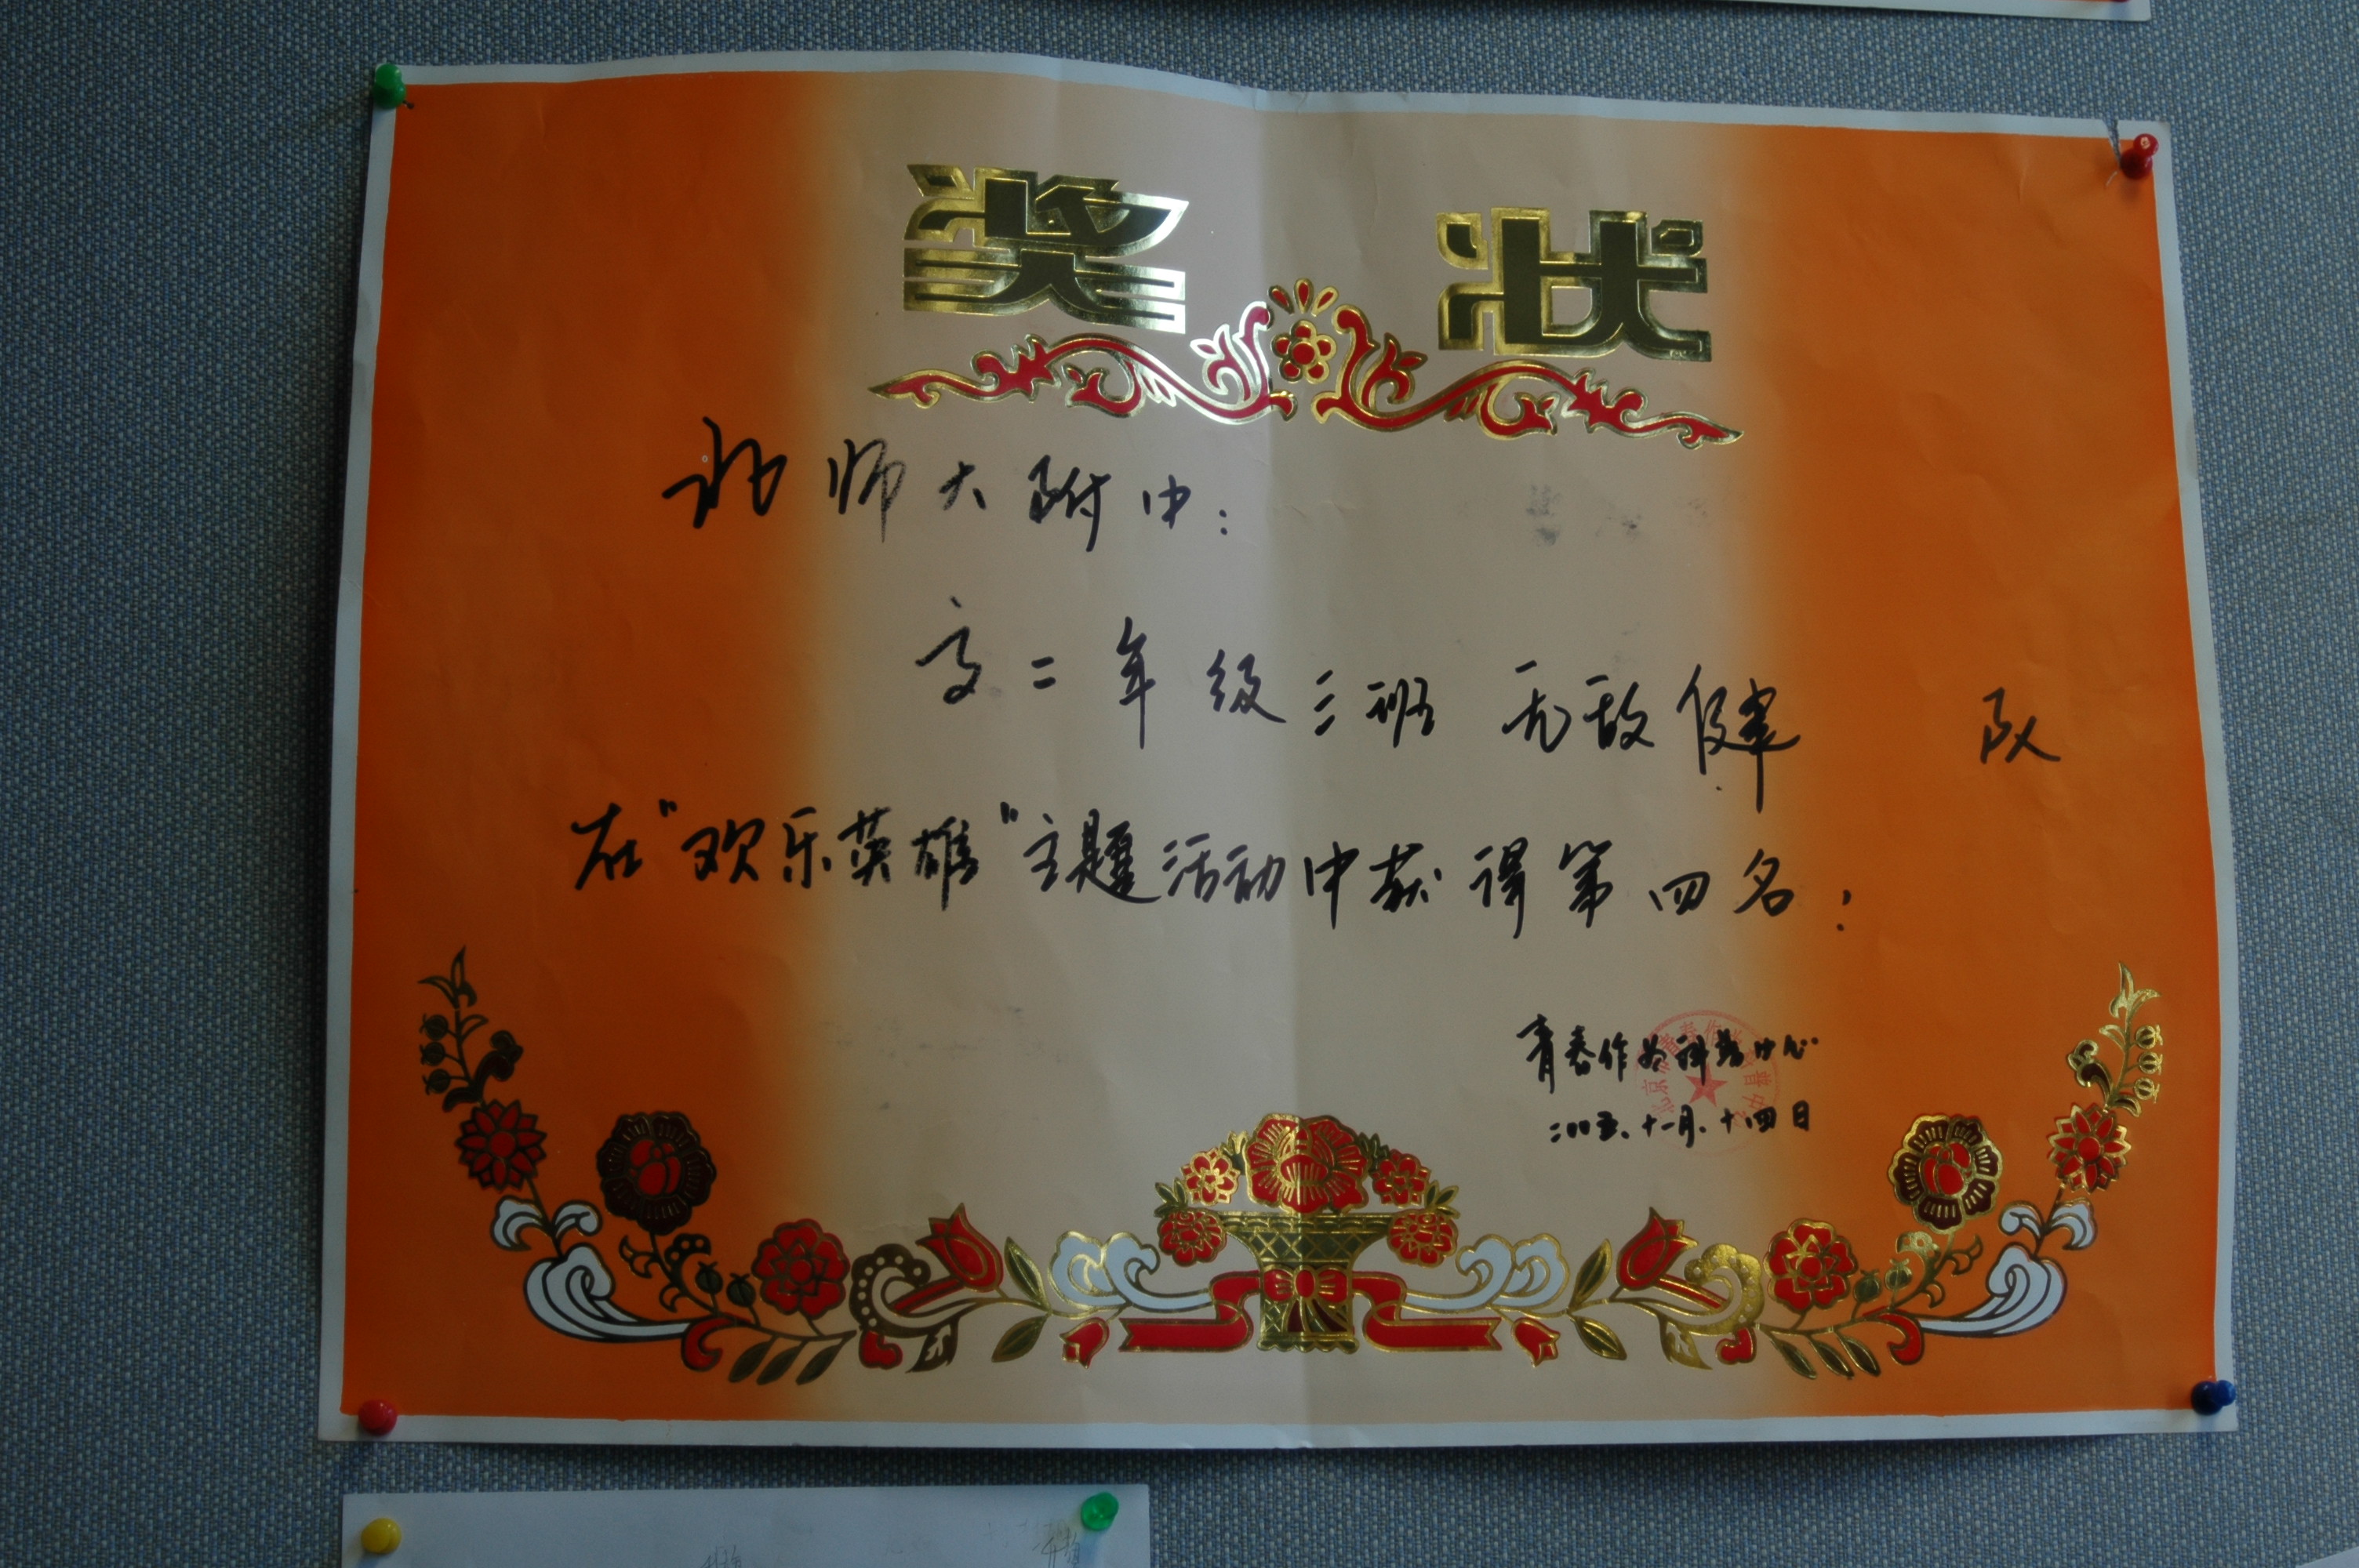 奖状
北师大附中:
高二年级三班 无敌健 队
在"欢乐英雄"主题活动中获得第四名:
青春作为科普中心
二00五、十一月、十四日